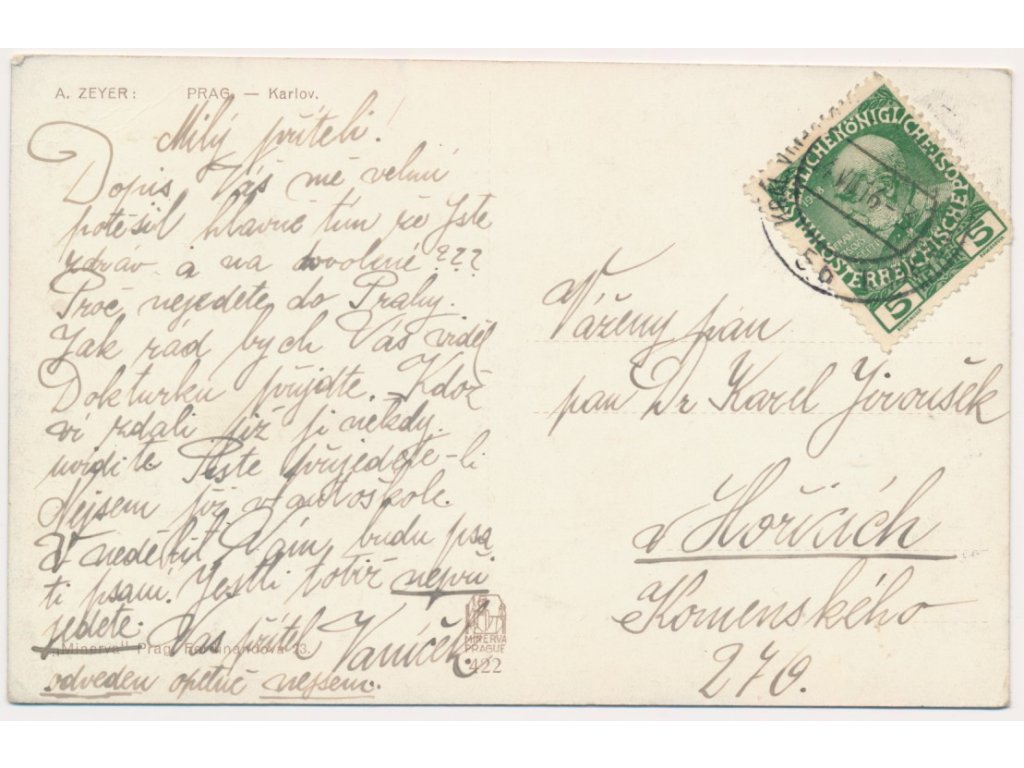 A. ZEYER: PRAG — Karlov.
Milý příteli!
Dopis Váš mě velmi
potěšil hlavně tím že Jste
zdráv a na dovolené ???
Proč nejedete do Prahy.
Jak rád bych Vás viděl
Dokturku přijdte. Kdož
ví zdali již ji někdy
uvidíte Pište přijedete-li
Nejsem již v autoškole.
V neděli Vám budu psá
ti psaní. Jestli totiž nepři
jedete. Vás přítel Vaníček.
odveden opětně nejsem.
„Minerva" Prag, Ferdinandova 23.
MINERVA
PRAGUE
422
KAISERLICHE KÖNIGLICHE ÖSTERREICHISCHE POST
5 HELLER 5
Vážený pán
pan Dr Karel Jiroušek
v Hořicích
Komenského
270.